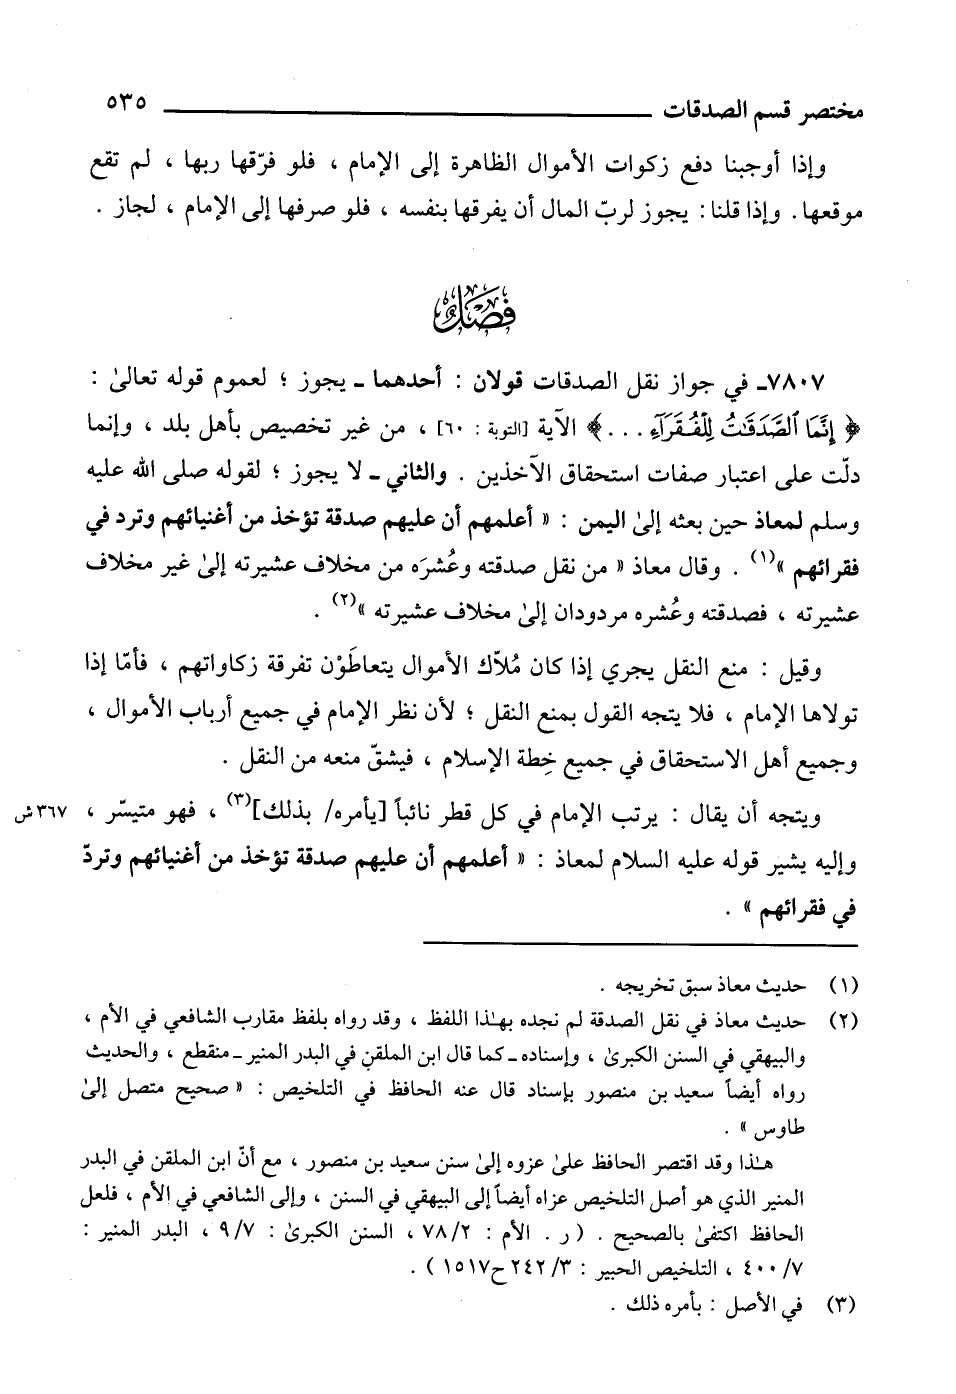 مختصر قسم الصدقات ٥٣٥
وإذا أوجبنا دفع زكوات الأموال الظاهرة إلى الإمام ، فلو فرّقها ربها ، لم تقع
موقعها. وإذا قلنا: يجوز لربّ المال أن يفرقها بنفسه ، فلو صرفها إلى الإمام ، لجاز .
فصل
٧٨٠٧ـ في جواز نقل الصدقات قولان : أحدهما ـ يجوز ؛ لعموم قوله تعالىٰ :
﴿ إِنَّمَا ٱلصَّدَقَٰتُ لِلْفُقَرَآءِ . . .﴾ الآية [التوبة : ٦٠] ، من غير تخصيص بأهل بلد ، وإنما
دلّت على اعتبار صفات استحقاق الآخذين . والثاني ـ لا يجوز ؛ لقوله صلى الله عليه
وسلم لمعاذ حين بعثه إلىٰ اليمن : « أعلمهم أن عليهم صدقة تؤخذ من أغنيائهم وترد في
فقرائهم »(١) . وقال معاذ « من نقل صدقته وعُشرَه من مخلاف عشيرته إلىٰ غير مخلاف
عشيرته ، فصدقته وعُشره مردودان إلىٰ مخلاف عشيرته »(٢) .
وقيل : منع النقل يجري إذا كان مُلاّك الأموال يتعاطَوْن تفرقة زكاواتهم ، فأمّا إذا
تولاها الإمام ، فلا يتجه القول بمنع النقل ؛ لأن نظر الإمام في جميع أرباب الأموال ،
وجميع أهل الاستحقاق في جميع خِطة الإسلام ، فيشقّ منعه من النقل .
ويتجه أن يقال : يرتب الإمام في كل قطر نائباً [يأمره/ بذلك](٣) ، فهو متيسّر ، ٣٦٧ ش
وإليه يشير قوله عليه السلام لمعاذ : « أعلمهم أن عليهم صدقة تؤخذ من أغنيائهم وتردّ
في فقرائهم » .
(١) حديث معاذ سبق تخريجه .
(٢) حديث معاذ في نقل الصدقة لم نجده بهـٰذا اللفظ ، وقد رواه بلفظ مقارب الشافعي في الأم ،
والبيهقي في السنن الكبرىٰ ، وإسناده ـ كما قال ابن الملقن في البدر المنير ـ منقطع ، والحديث
رواه أيضاً سعيد بن منصور بإسناد قال عنه الحافظ في التلخيص : « صحيح متصل إلىٰ
طاوس » .
هـٰذا وقد اقتصر الحافظ علىٰ عزوه إلىٰ سنن سعيد بن منصور ، مع أنّ ابن الملقن في البدر
المنير الذي هو أصل التلخيص عزاه أيضاً إلى البيهقي في السنن ، وإلى الشافعي في الأم ، فلعل
الحافظ اكتفىٰ بالصحيح . ( ر . الأم : ٧٨/٢ ، السنن الكبرىٰ : ٩/٧ ، البدر المنير :
٤٠٠/٧ ، التلخيص الحبير : ٢٤٢/٣ ح١٥١٧ ) .
(٣) في الأصل : بأمره ذلك .